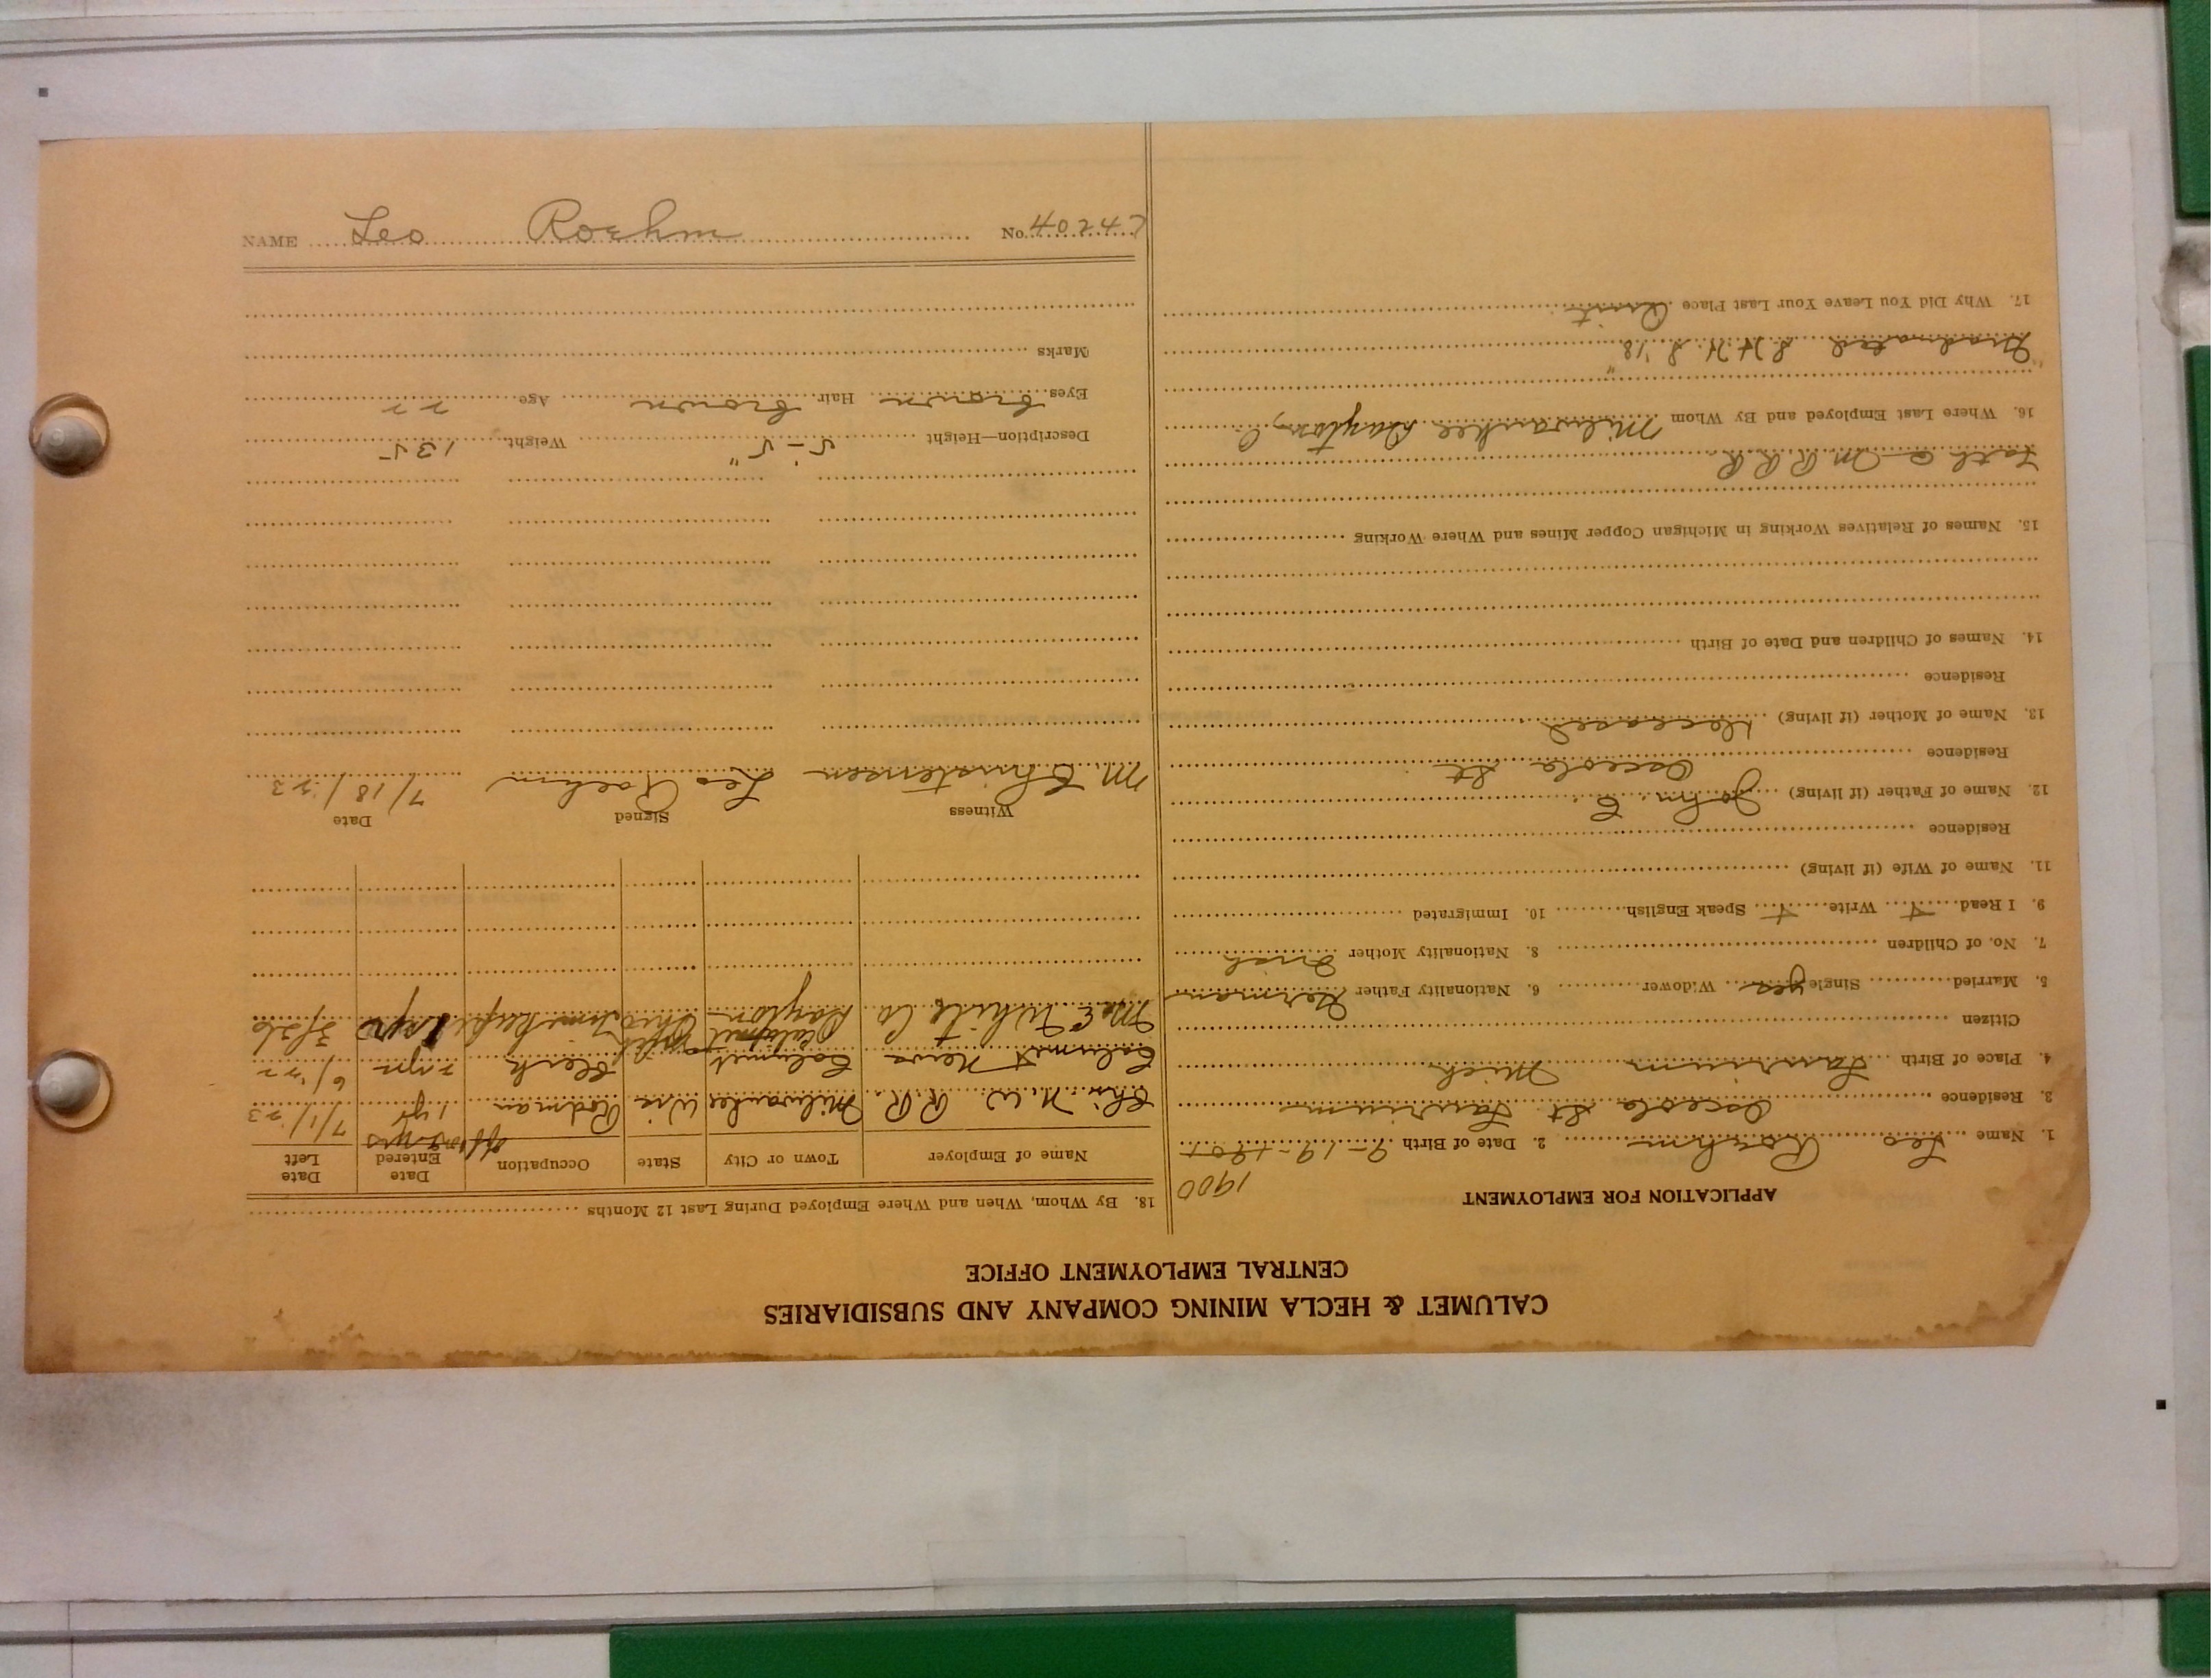 CALUMET & HECLA MINING COMPANY AND SUBSIDIARIES
CENTRAL EMPLOYMENT OFFICE
APPLICATION FOR EMPLOYMENT
1900
1. Name Leo Roehm 2. Date of Birth 9-19-1901
3. Residence Osceola St. Laurium
4. Place of Birth Laurium Mich
Citizen
5. Married Single yes Widower 6. Nationality Father German
7. No. of Children 8. Nationality Mother Irish
9. I Read + Write + Speak English 10. Immigrated
11. Name of Wife (if living)
Residence
12. Name of Father (if living) John C.
Residence Osceola St
13. Name of Mother (if living) Deceased
Residence
14. Names of Children and Date of Birth
15. Names of Relatives Working in Michigan Copper Mines and Where Working
Fath M R R R
16. Where Last Employed and By Whom Milwaukee Dayton, O
Graduated L H S '18
17. Why Did You Leave Your Last Place Quit
18. By Whom, When and Where Employed During Last 12 Months
Name of Employer Town or City State Occupation Date Entered Date Left
Chi. N. W R. R. Milwaukee Wis Rodman 1 yr 7/1/23
Calumet News Calumet Mich Clerk 2 yr 6/22
White Co Dayton Ohio
Witness Signed Date
M. Christensen Leo Roehm 7/18/23
Description—Height 5'-5" Weight 135
Eyes brown Hair brown Age 22
Marks
NAME Leo Roehm No. 40247